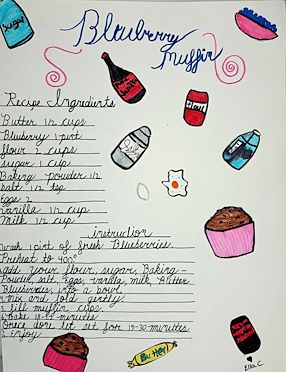 Sugar
Blueberry
Muffin
Recipe Ingredients
Butter 1/2 cups
Blueberry 1 pint
flour 2 cups
sugar 1 cup
Baking powder 1/2
salt 1/2 tsp
Eggs 2
vanilla 1/2 cup
Milk 1/2 cup
instruction
wash 1 pint of fresh Blueberries.
Preheat to 400°
add your flour, sugar, Baking-
Powder, salt, Eggs, vanilla, milk, Butter,
Blueberries, into a bowl.
4. mix and fold gently.
5. fill muffin cups.
6. Bake minutes
Once done let set for 15-30 minutes
Enjoy
Butter
Ella C.